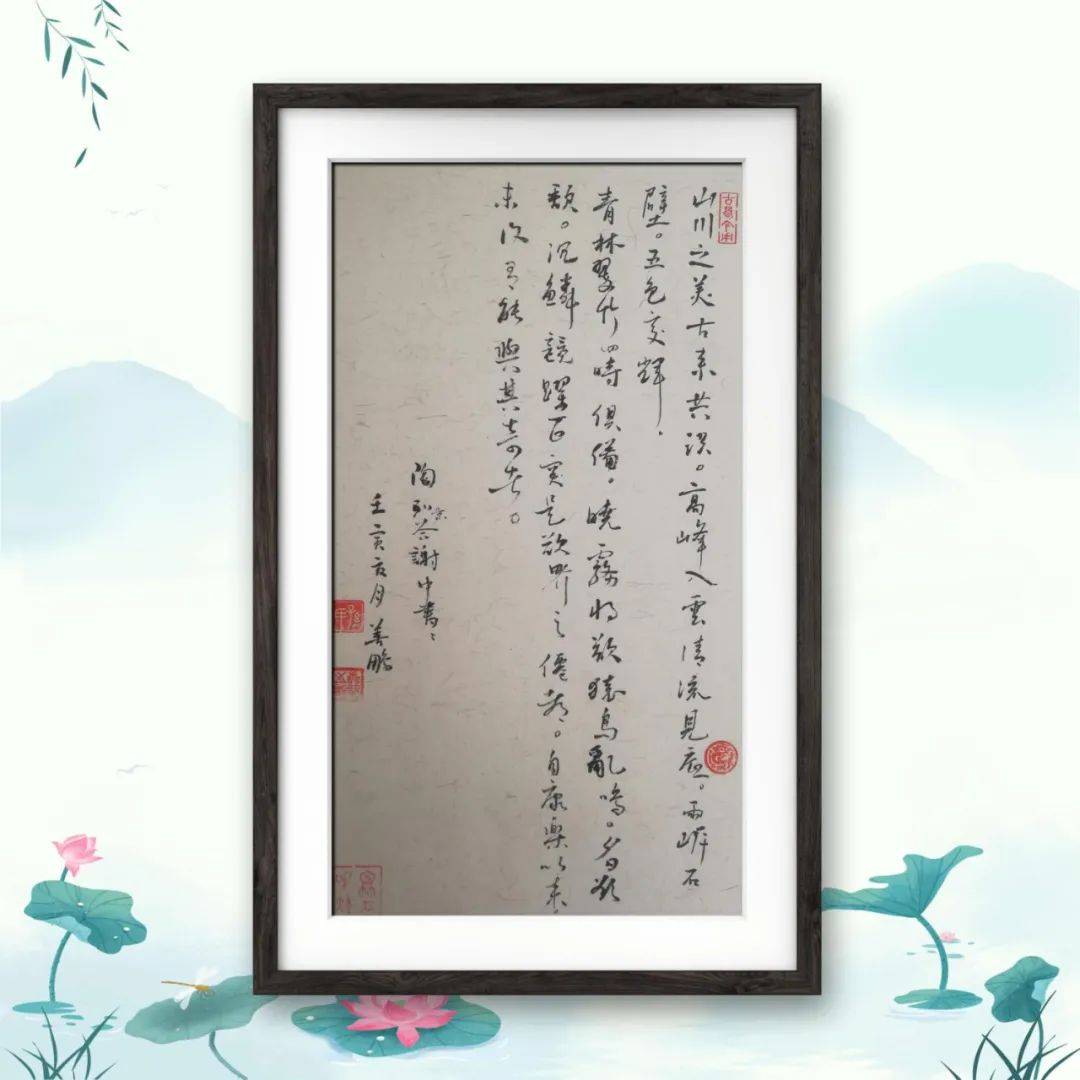 古為今用
山川之美古来共談。高峰入雲清流見底。兩岸石
壁。五色交輝，
青林翠竹四時俱備，曉霧将歇猿鳥亂鳴。夕日欲
頹。沉鱗競躍實是欲界之僊都。自康樂以来
未復有能與其奇者。
陶弘景答謝中書〻
壬寅亥月 善